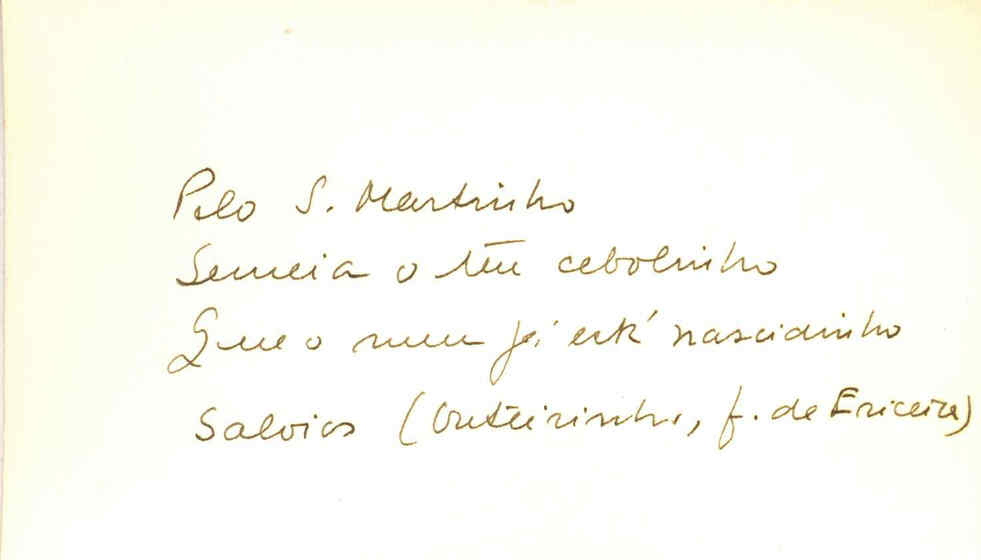 Pelo S. Martinho
Semeia o teu cebolinho
Que o meu já está nascidinho
Saloios (Outeirinho, f. de Ericeira)